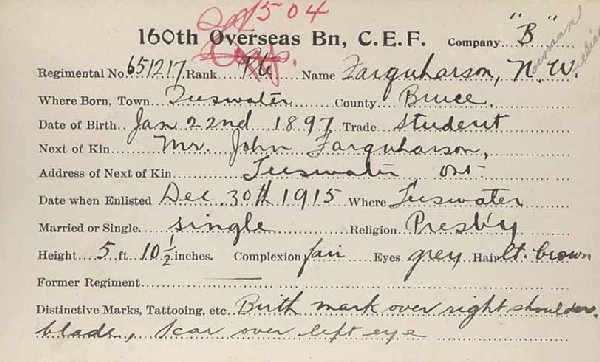 1504
160th Overseas Bn, C.E.F. Company "B"
Regimental No. 651217 Rank Pte Name Farquharson, N. W.
Norman William
Where Born, Town Teeswater County Bruce.
Date of Birth Jan 22nd 1897 Trade Student
Next of Kin Mr. John Farquharson,
Address of Next of Kin Teeswater Ont
Date when Enlisted Dec 30th 1915 Where Teeswater
Married or Single single Religion Presby
Height 5 ft. 10 1/2 inches. Complexion fair Eyes grey Hair lt. brown
Former Regiment
Distinctive Marks, Tattooing, etc. Birth mark over right shoulder
blade, scar over left eye